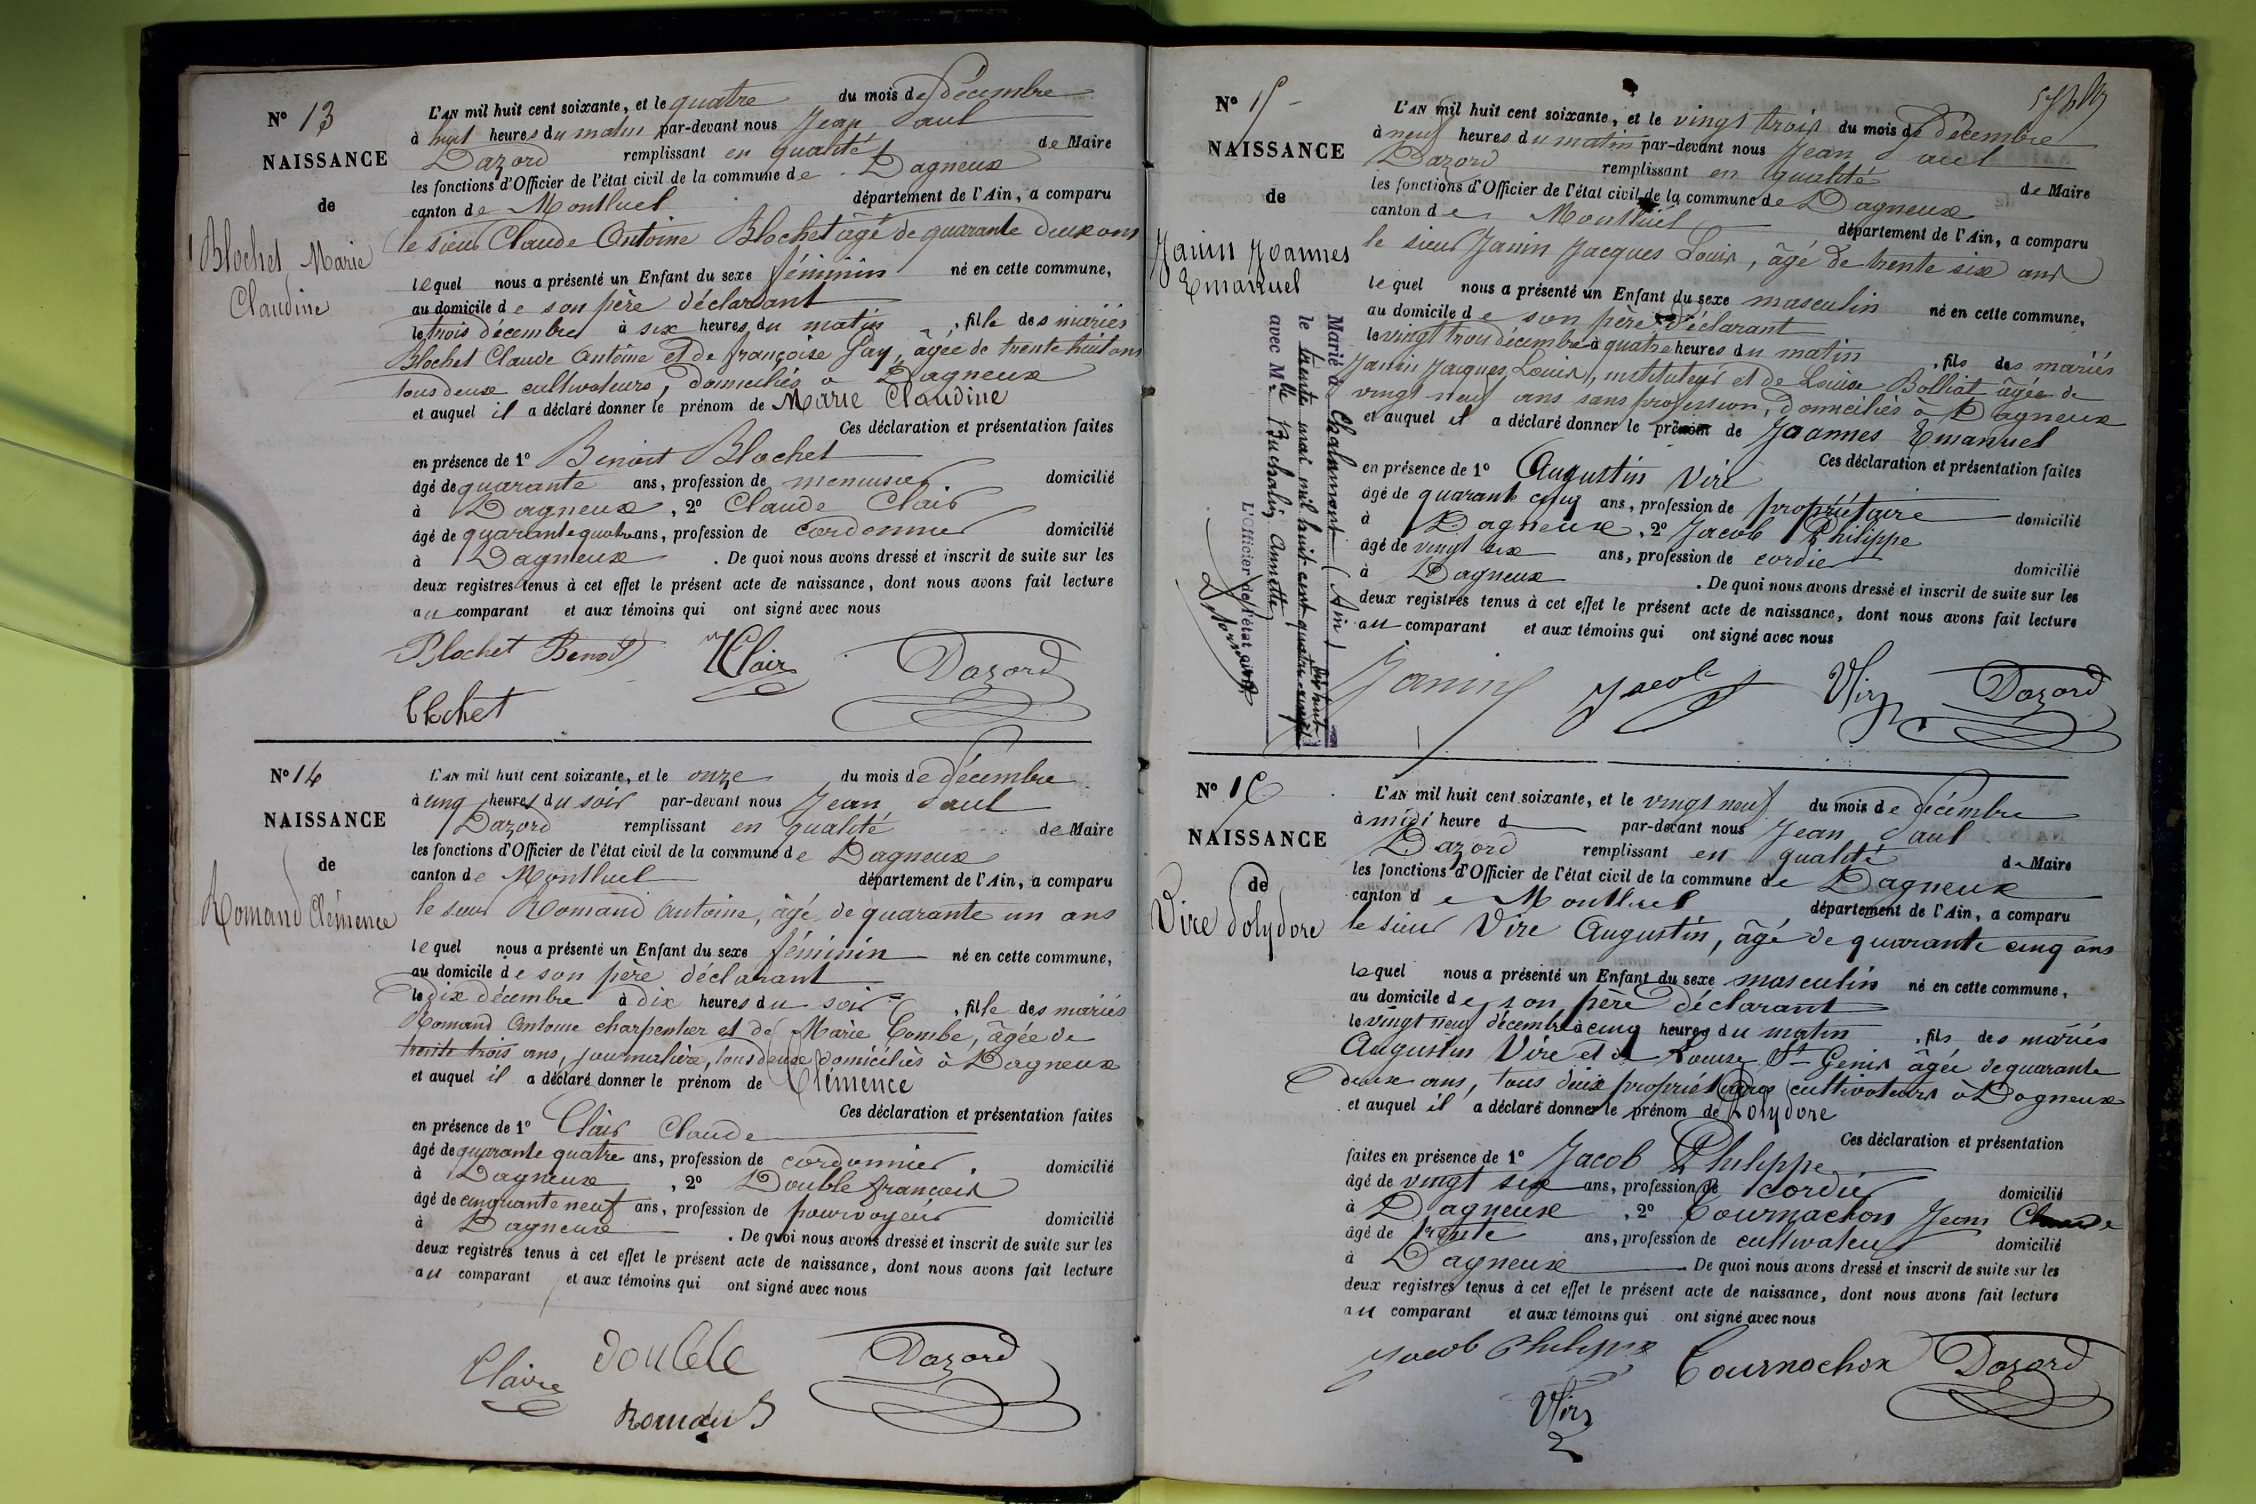 N° 13
NAISSANCE
de
Blochet Marie
Claudine
L'AN mil huit cent soixante, et le quatre du mois de décembre
à huit heures du matin par-devant nous Jean Paul
Dazord remplissant en qualité de Maire
les fonctions d'Officier de l'état civil de la commune de Dagneux
canton de Montluel département de l'Ain, a comparu
le sieur Claude Antoine Blochet âgé de quarante deux ans
lequel nous a présenté un Enfant du sexe féminin né en cette commune,
au domicile de son père déclarant
le trois décembre à six heures du matin, fille des mariés
Blochet Claude Antoine et de françoise Gay, âgée de trente huit ans
tous deux cultivateurs, domiciliés à Dagneux
et auquel il a déclaré donner le prénom de Marie Claudine
Ces déclaration et présentation faites
en présence de 1° Benoit Blochet
âgé de quarante ans, profession de menuisier domicilié
à Dagneux, 2° Claude Clair
âgé de quarante quatre ans, profession de cordonnier domicilié
à Dagneux. De quoi nous avons dressé et inscrit de suite sur les
deux registres tenus à cet effet le présent acte de naissance, dont nous avons fait lecture
au comparant et aux témoins qui ont signé avec nous
Blochet Benoit Clair Dazord
Blochet
N° 14
NAISSANCE
de
Romand Clémence
L'AN mil huit cent soixante, et le onze du mois de décembre
à cinq heures du soir par-devant nous Jean Paul
Dazord remplissant en qualité de Maire
les fonctions d'Officier de l'état civil de la commune de Dagneux
canton de Montluel département de l'Ain, a comparu
le sieur Romand Antoine, âgé de quarante un ans
lequel nous a présenté un Enfant du sexe féminin né en cette commune,
au domicile de son père déclarant
le dix décembre à dix heures du soir, fille des mariés
Romand Antoine charpentier et de Marie Combe, âgée de
trente trois ans, journalière, tous deux domiciliés à Dagneux
et auquel il a déclaré donner le prénom de Clémence
Ces déclaration et présentation faites
en présence de 1° Clair Claude
âgé de quarante quatre ans, profession de cordonnier, domicilié
à Dagneux, 2° Double françois
âgé de cinquante neuf ans, profession de pourvoyeur domicilié
à Dagneux. De quoi nous avons dressé et inscrit de suite sur les
deux registres tenus à cet effet le présent acte de naissance, dont nous avons fait lecture
au comparant et aux témoins qui ont signé avec nous
Claire double Dazord
Romand
N° 15
NAISSANCE
de
Janin Joannes
Emanuel
Marié à Chalamont (Ain)
le trente mai mil huit cent quatre-vingt
dix huit
avec Melle Buchalin Annette
L'Officier de l'état civil,
L'AN mil huit cent soixante, et le vingt trois du mois de décembre
à neuf heures du matin par-devant nous Jean Paul
Dazord remplissant en qualité de Maire
les fonctions d'Officier de l'état civil de la commune de Dagneux
canton de Montluel département de l'Ain, a comparu
le sieur Janin Jacques Louis, âgé de trente six ans
lequel nous a présenté un Enfant du sexe masculin né en cette commune,
au domicile de son père déclarant
le vingt trois décembre à quatre heures du matin, fils des mariés
Janin Jacques Louis, instituteur et de Louise Bolliat âgée de
vingt neuf ans sans profession, domiciliés à Dagneux
et auquel il a déclaré donner le prénom de Joannes Emanuel
Ces déclaration et présentation faites
en présence de 1° Augustin Vire
âgé de quarante cinq ans, profession de propriétaire domicilié
à Dagneux, 2° Jacob Philippe
âgé de vingt six ans, profession de cordier domicilié
à Dagneux. De quoi nous avons dressé et inscrit de suite sur les
deux registres tenus à cet effet le présent acte de naissance, dont nous avons fait lecture
au comparant et aux témoins qui ont signé avec nous
Janin Jacob Vire Dazord
N° 16
NAISSANCE
de
Vire Polydore
L'AN mil huit cent soixante, et le vingt neuf du mois de décembre
à midi heure d par-devant nous Jean Paul
Dazord remplissant en qualité de Maire
les fonctions d'Officier de l'état civil de la commune de Dagneux
canton de Montluel département de l'Ain, a comparu
le sieur Vire Augustin, âgé de quarante cinq ans
lequel nous a présenté un Enfant du sexe masculin né en cette commune,
au domicile de son père déclarant
le vingt neuf décembre à cinq heures du matin, fils des mariés
Augustin Vire et de Louise St Genis âgée de quarante
deux ans, tous deux propriétaires cultivateurs à Dagneux
et auquel il a déclaré donner le prénom de Polydore
Ces déclaration et présentation
faites en présence de 1° Jacob Philippe
âgé de vingt six ans, profession de cordier domicilié
à Dagneux, 2° Cournachon Jean Claude
âgé de trente ans, profession de cultivateur domicilié
à Dagneux. De quoi nous avons dressé et inscrit de suite sur les
deux registres tenus à cet effet le présent acte de naissance, dont nous avons fait lecture
au comparant et aux témoins qui ont signé avec nous
Jacob Philippe Cournochon Dazord
Vire